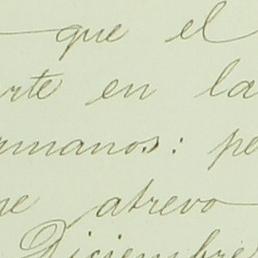 que el
rte en la
rmanos: pe
me atrevo
Diciembre